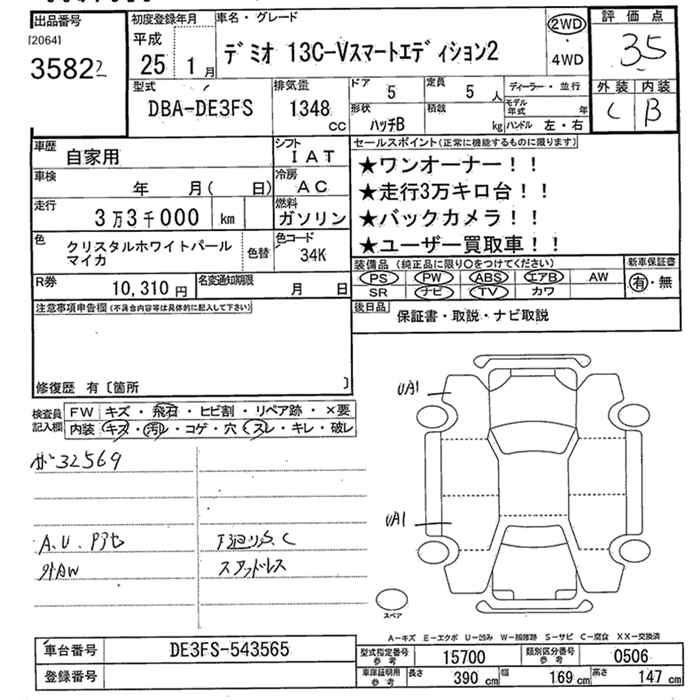 出品番号
[2064]
35822
初度登録年月
平成
25 1月
車名・グレード
デミオ 13C-Vスマートエディション2
2WD
・
4WD
評価点
3.5
外装 内装
C B
型式
DBA-DE3FS
排気量
1348 CC
ドア
5
定員
5人
形状
ハッチB
積載
kg
ディーラー・並行
モデル年式 年
ハンドル 左・右
車歴
自家用
シフト
IAT
車検
年 月( 日)
冷房
AC
走行
3万3千000 km
燃料
ガソリン
色
クリスタルホワイトパール
マイカ
色替
色コード
34K
R券
10,310円
名変通知期限
月 日
セールスポイント(正常に機能するものに限ります)
★ワンオーナー!!
★走行3万キロ台!!
★バックカメラ!!
★ユーザー買取車!!
装備品(純正品に限り○をつけてください)
PS PW ABS エアB AW
SR ナビ TV カワ
新車保証書
有・無
後日品
保証書・取説・ナビ取説
注意事項申告欄(不具合内容等は具体的に記入して下さい)
修復歴 有〔箇所 〕
検査員
記入欄
FW キズ・飛石・ヒビ割・リペア跡・×要
内装 キズ・汚レ・コゲ・穴・スレ・キレ・破レ
32569
A.U.
外AW
下廻りS.C
スタッドレス
UA1
UA1
スペア
A-キズ E-エクボ U-凹み W-補修跡 S-サビ C-腐食 XX-交換済
車台番号
DE3FS-543565
登録番号
型式指定番号
参考
15700
類別区分番号
参考
0506
車庫証明用
参考
長さ 390cm 幅 169cm 高さ 147cm